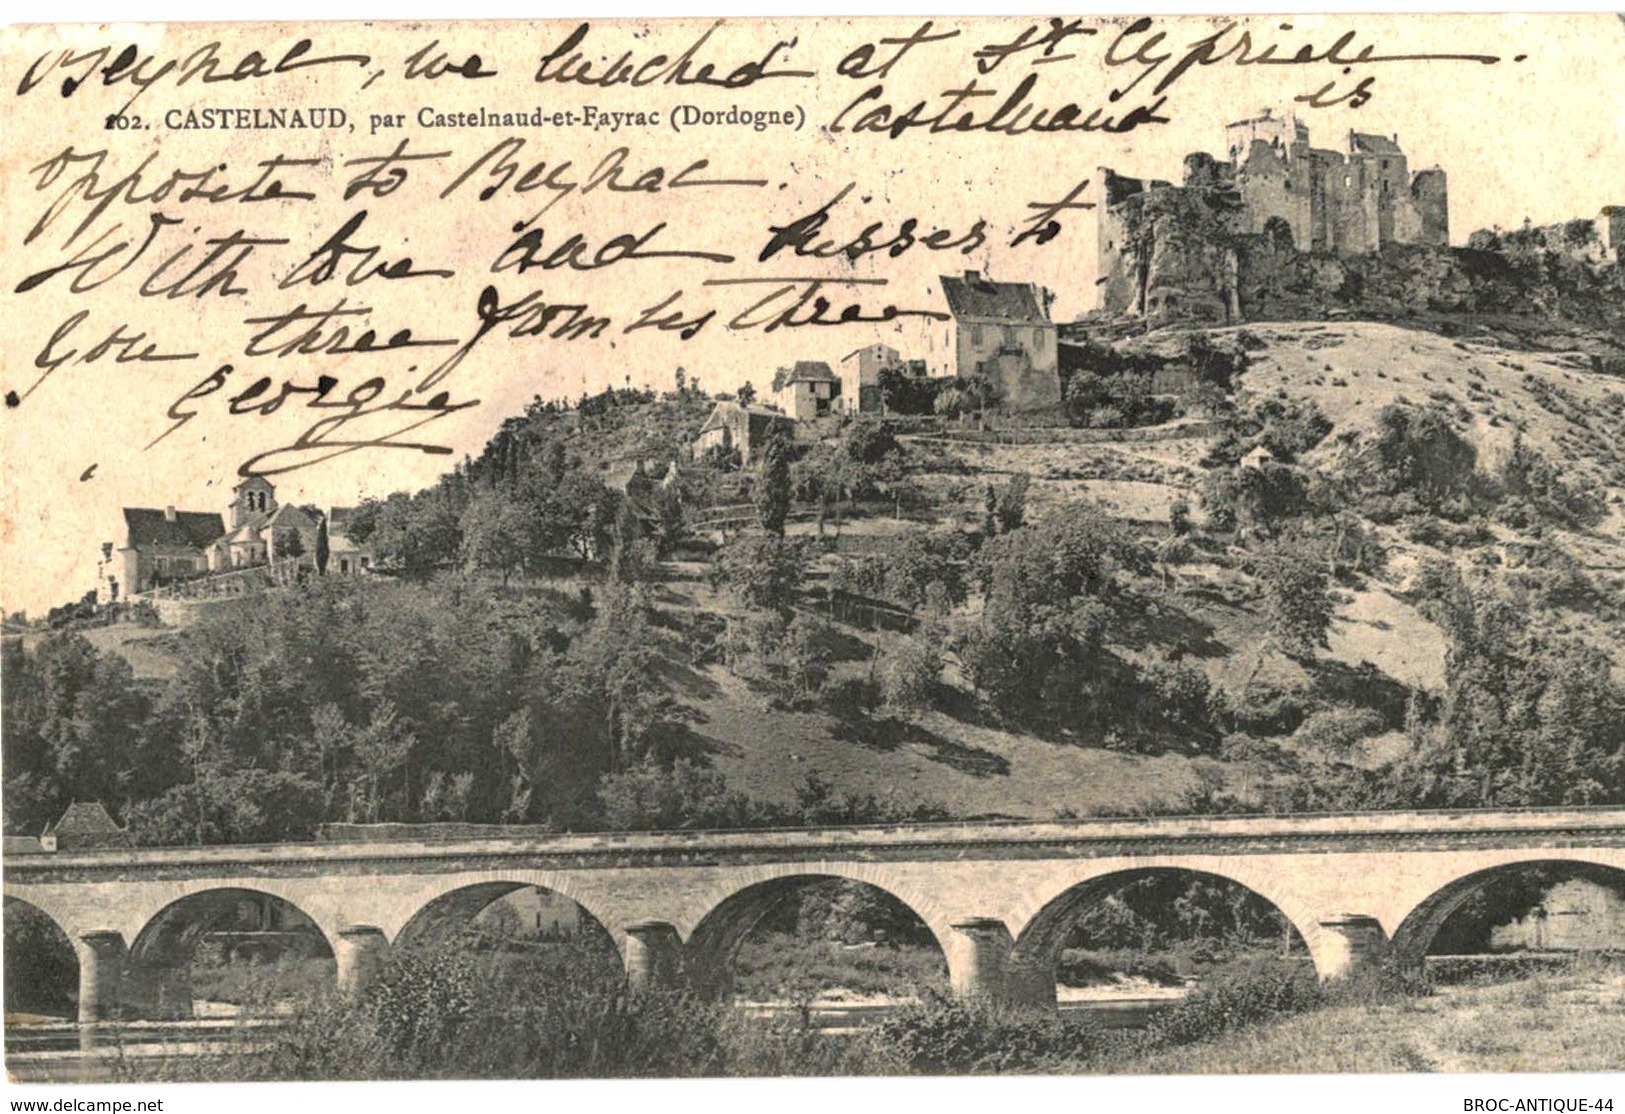 Beynac, we lunched at St Cyprien.
102. CASTELNAUD, par Castelnaud-et-Fayrac (Dordogne)
Castelnaud is
opposite to Beynac.
With love and kisses to
you three from us three
Georgie
delcampe.net
BROC-ANTIQUE-44